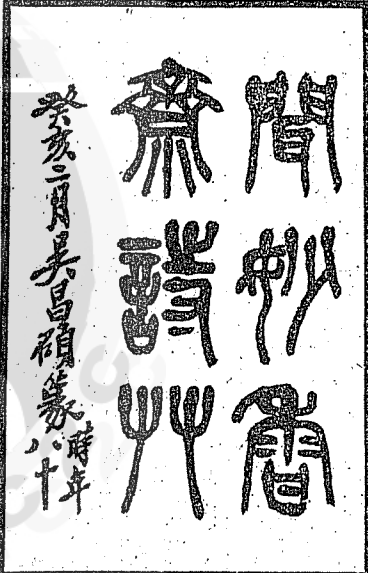 聞妙香
齋詩艸
癸亥二月吳昌碩篆
時年
八十